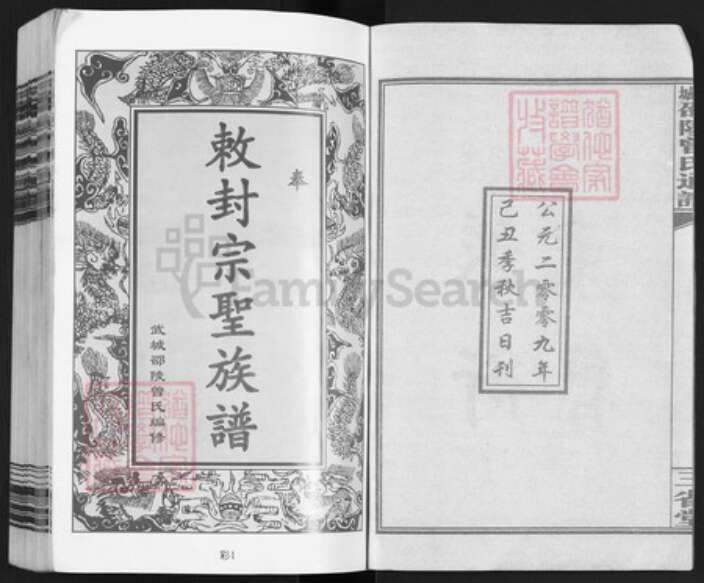 奉
敕封宗聖族譜
武城邵陵曾氏編修
彩1
公元二零零九年
己丑季秋吉日刊
城邵陵曾氏通譜
三省堂
FamilySearch